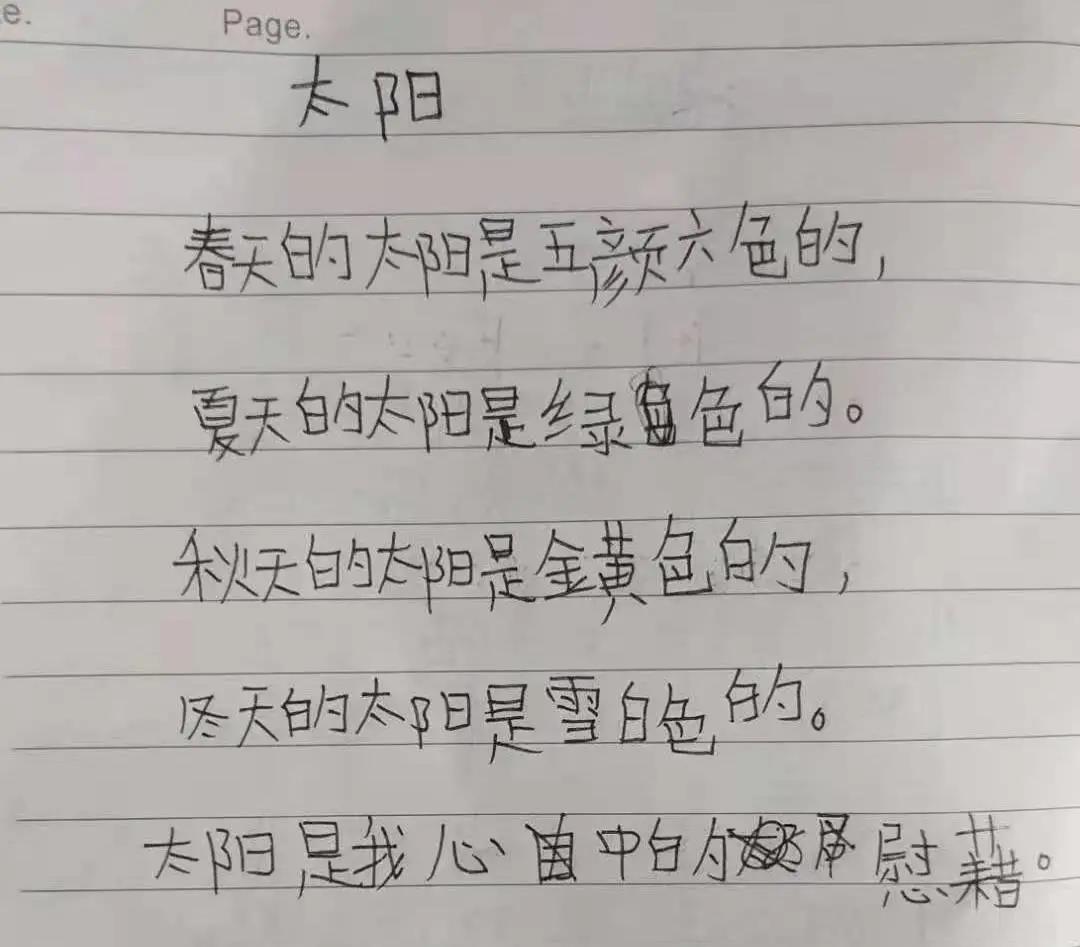 e. Page.
太阳
春天的太阳是五颜六色的,
夏天的太阳是绿色的。
秋天的太阳是金黄色的,
冬天的太阳是雪白色的。
太阳是我心中的慰藉。